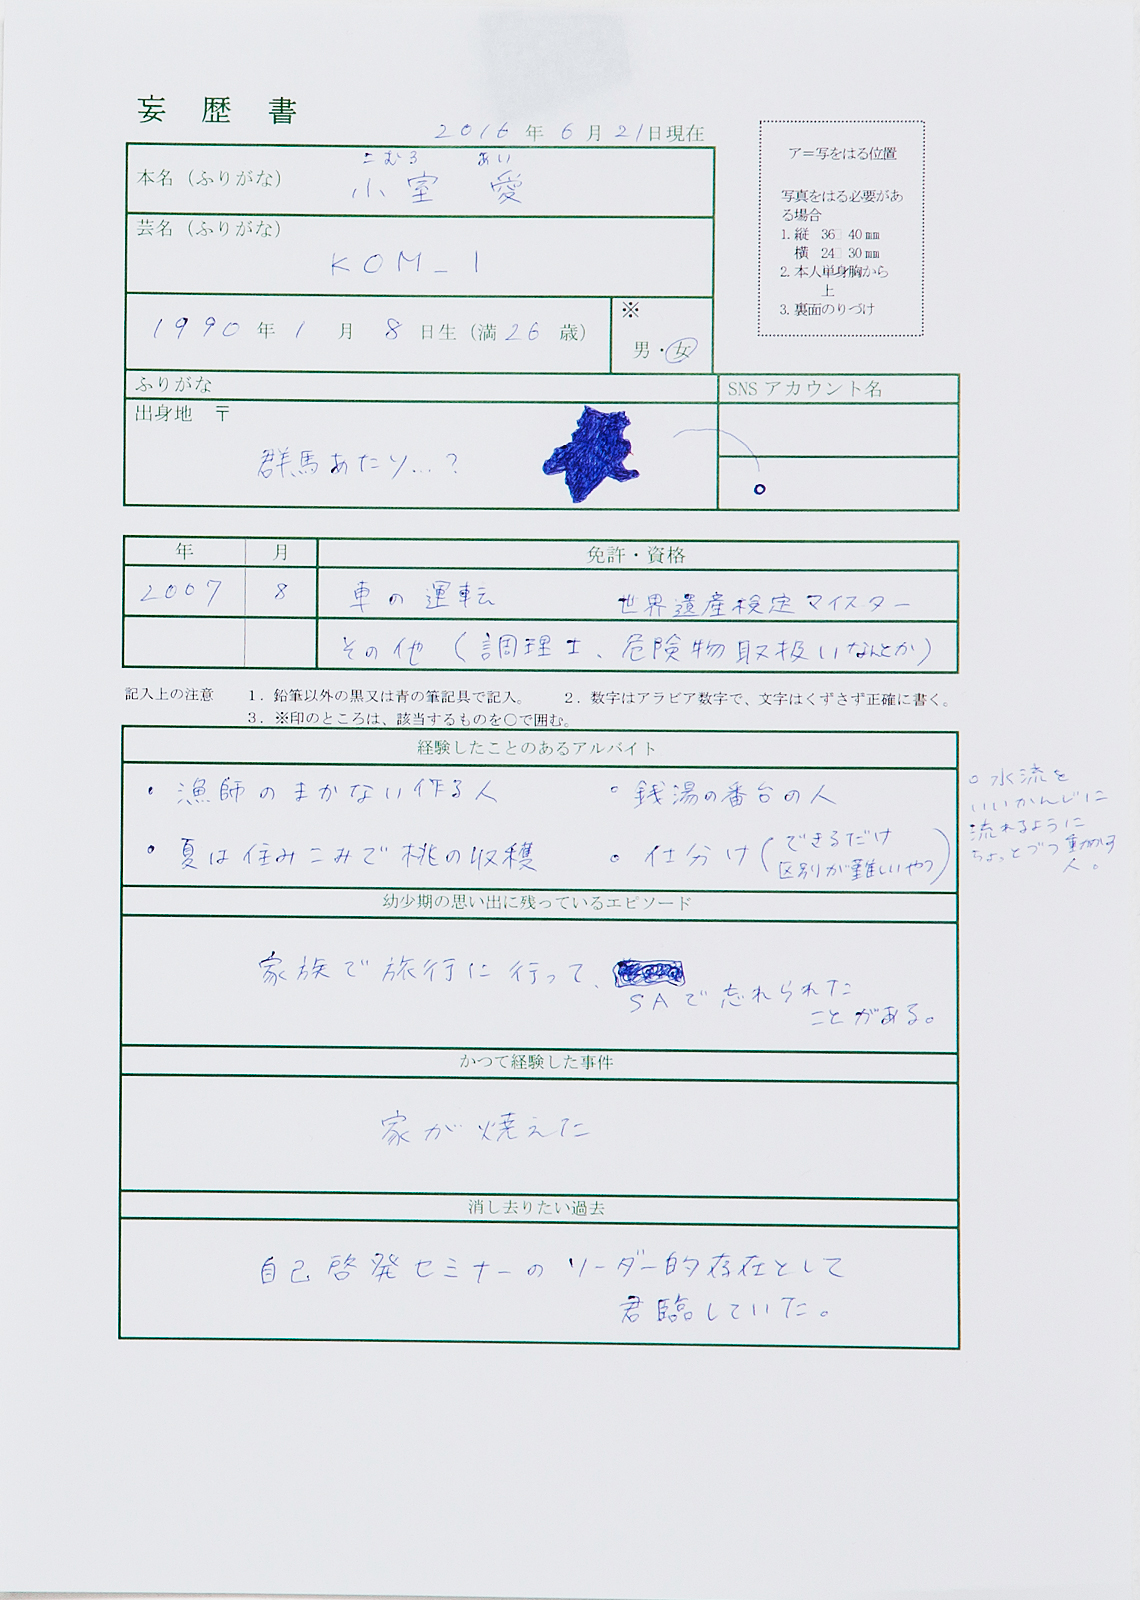 妄歴書
2016年6月21日現在
本名（ふりがな）
こむろ　あい
小室　愛
芸名（ふりがな）
KOM_I
1990年1月8日生（満26歳）
※
男・女
ア＝写をはる位置
写真をはる必要があ
る場合
1. 縦　36　40㎜
横　24　30㎜
2. 本人単身胸から
上
3. 裏面のりづけ
ふりがな
SNS アカウント名
出身地　〒
群馬あたり...？
年　月　免許・資格
2007　8　車の運転　世界遺産検定マイスター
その他（調理士、危険物取扱いなんとか）
記入上の注意　1．鉛筆以外の黒又は青の筆記具で記入。　2．数字はアラビア数字で、文字はくずさず正確に書く。
3．※印のところは、該当するものを○で囲む。
経験したことのあるアルバイト
・漁師のまかない作る人
。銭湯の番台の人
・夏は住みこみで桃の収穫
。仕分け（できるだけ
区別が難しいやつ）
○水流を
いいかんじに
流れるように
ちょっとづつ動かす
人。
幼少期の思い出に残っているエピソード
家族で旅行に行って、
SAで忘れられた
ことがある。
かつて経験した事件
家が燃えた
消し去りたい過去
自己啓発セミナーのリーダー的存在として
君臨していた。